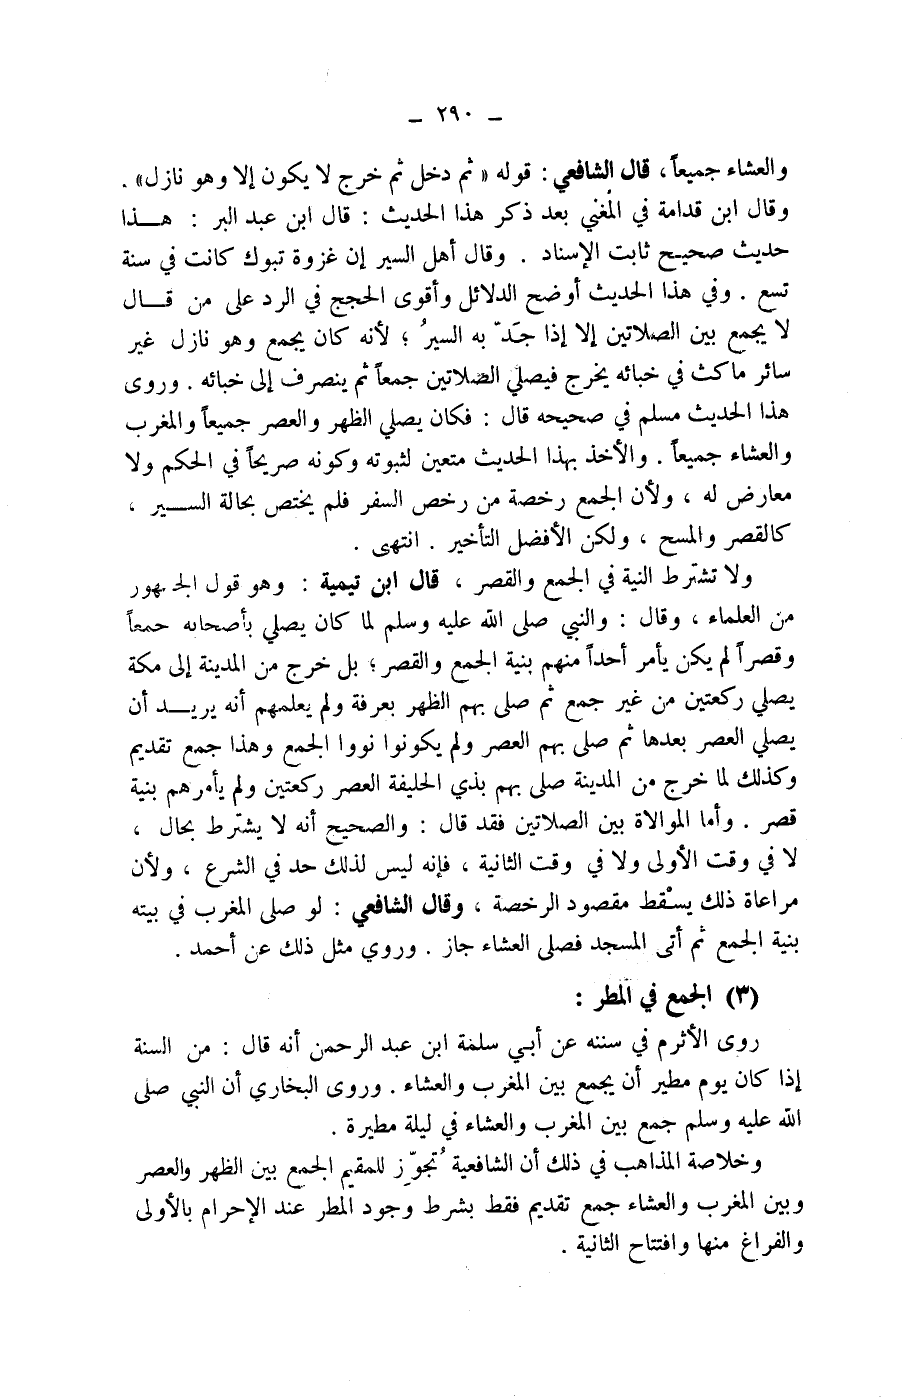 – ٢٩٠ –
والعشاء جميعاً، قال الشافعي : قوله « ثم دخل ثم خرج لا يكون إلا وهو نازل» .
وقال ابن قدامة في المغني بعد ذكر هذا الحديث : قال ابن عبد البر : هــذا
حديث صحيح ثابت الإسناد . وقال أهل السير إن غزوة تبوك كانت في سنة
تسع . وفي هذا الحديث أوضح الدلائل وأقوى الحجج في الرد على من قــال
لا يجمع بين الصلاتين إلا إذا جَدّ به السيرُ ؛ لأنه كان يجمع وهو نازل غير
سائر ماكث في خبائه يخرج فيصلي الصلاتين جمعاً ثم ينصرف إلى خبائه . وروى
هذا الحديث مسلم في صحيحه قال : فكان يصلي الظهر والعصر جميعاً والمغرب
والعشاء جميعاً . والأخذ بهذا الحديث متعين لثبوته وكونه صريحاً في الحكم ولا
معارض له ، ولأن الجمع رخصة من رخص السفر فلم يختص بحالة الســير ،
كالقصر والمسح ، ولكن الأفضل التأخير . انتهى .
ولا تشترط النية في الجمع والقصر ، قال ابن تيمية : وهو قول الجمهور
من العلماء ، وقال : والنبي صلى الله عليه وسلم لما كان يصلي بأصحابه جمعاً
وقصراً لم يكن يأمر أحداً منهم بنية الجمع والقصر ؛ بل خرج من المدينة إلى مكة
يصلي ركعتين من غير جمع ثم صلى بهم الظهر بعرفة ولم يعلمهم أنه يريــد أن
يصلي العصر بعدها ثم صلى بهم العصر ولم يكونوا نووا الجمع وهذا جمع تقديم
وكذلك لما خرج من المدينة صلى بهم بذي الحليفة العصر ركعتين ولم يأمرهم بنية
قصر . وأما الموالاة بين الصلاتين فقد قال : والصحيح أنه لا يشترط بحال ،
لا في وقت الأولى ولا في وقت الثانية ، فإنه ليس لذلك حد في الشرع ، ولأن
مراعاة ذلك يسْقط مقصود الرخصة ، وقال الشافعي : لو صلى المغرب في بيته
بنية الجمع ثم أتى المسجد فصلى العشاء جاز . وروي مثل ذلك عن أحمد .
(٣) الجمع في المطر :
روى الأثرم في سننه عن أبي سلمة ابن عبد الرحمن أنه قال : من السنة
إذا كان يوم مطير أن يجمع بين المغرب والعشاء . وروى البخاري أن النبي صلى
الله عليه وسلم جمع بين المغرب والعشاء في ليلة مطيرة .
وخلاصة المذاهب في ذلك أن الشافعية تُجوِّز للمقيم الجمع بين الظهر والعصر
وبين المغرب والعشاء جمع تقديم فقط بشرط وجود المطر عند الإحرام بالأولى
والفراغ منها وافتتاح الثانية .